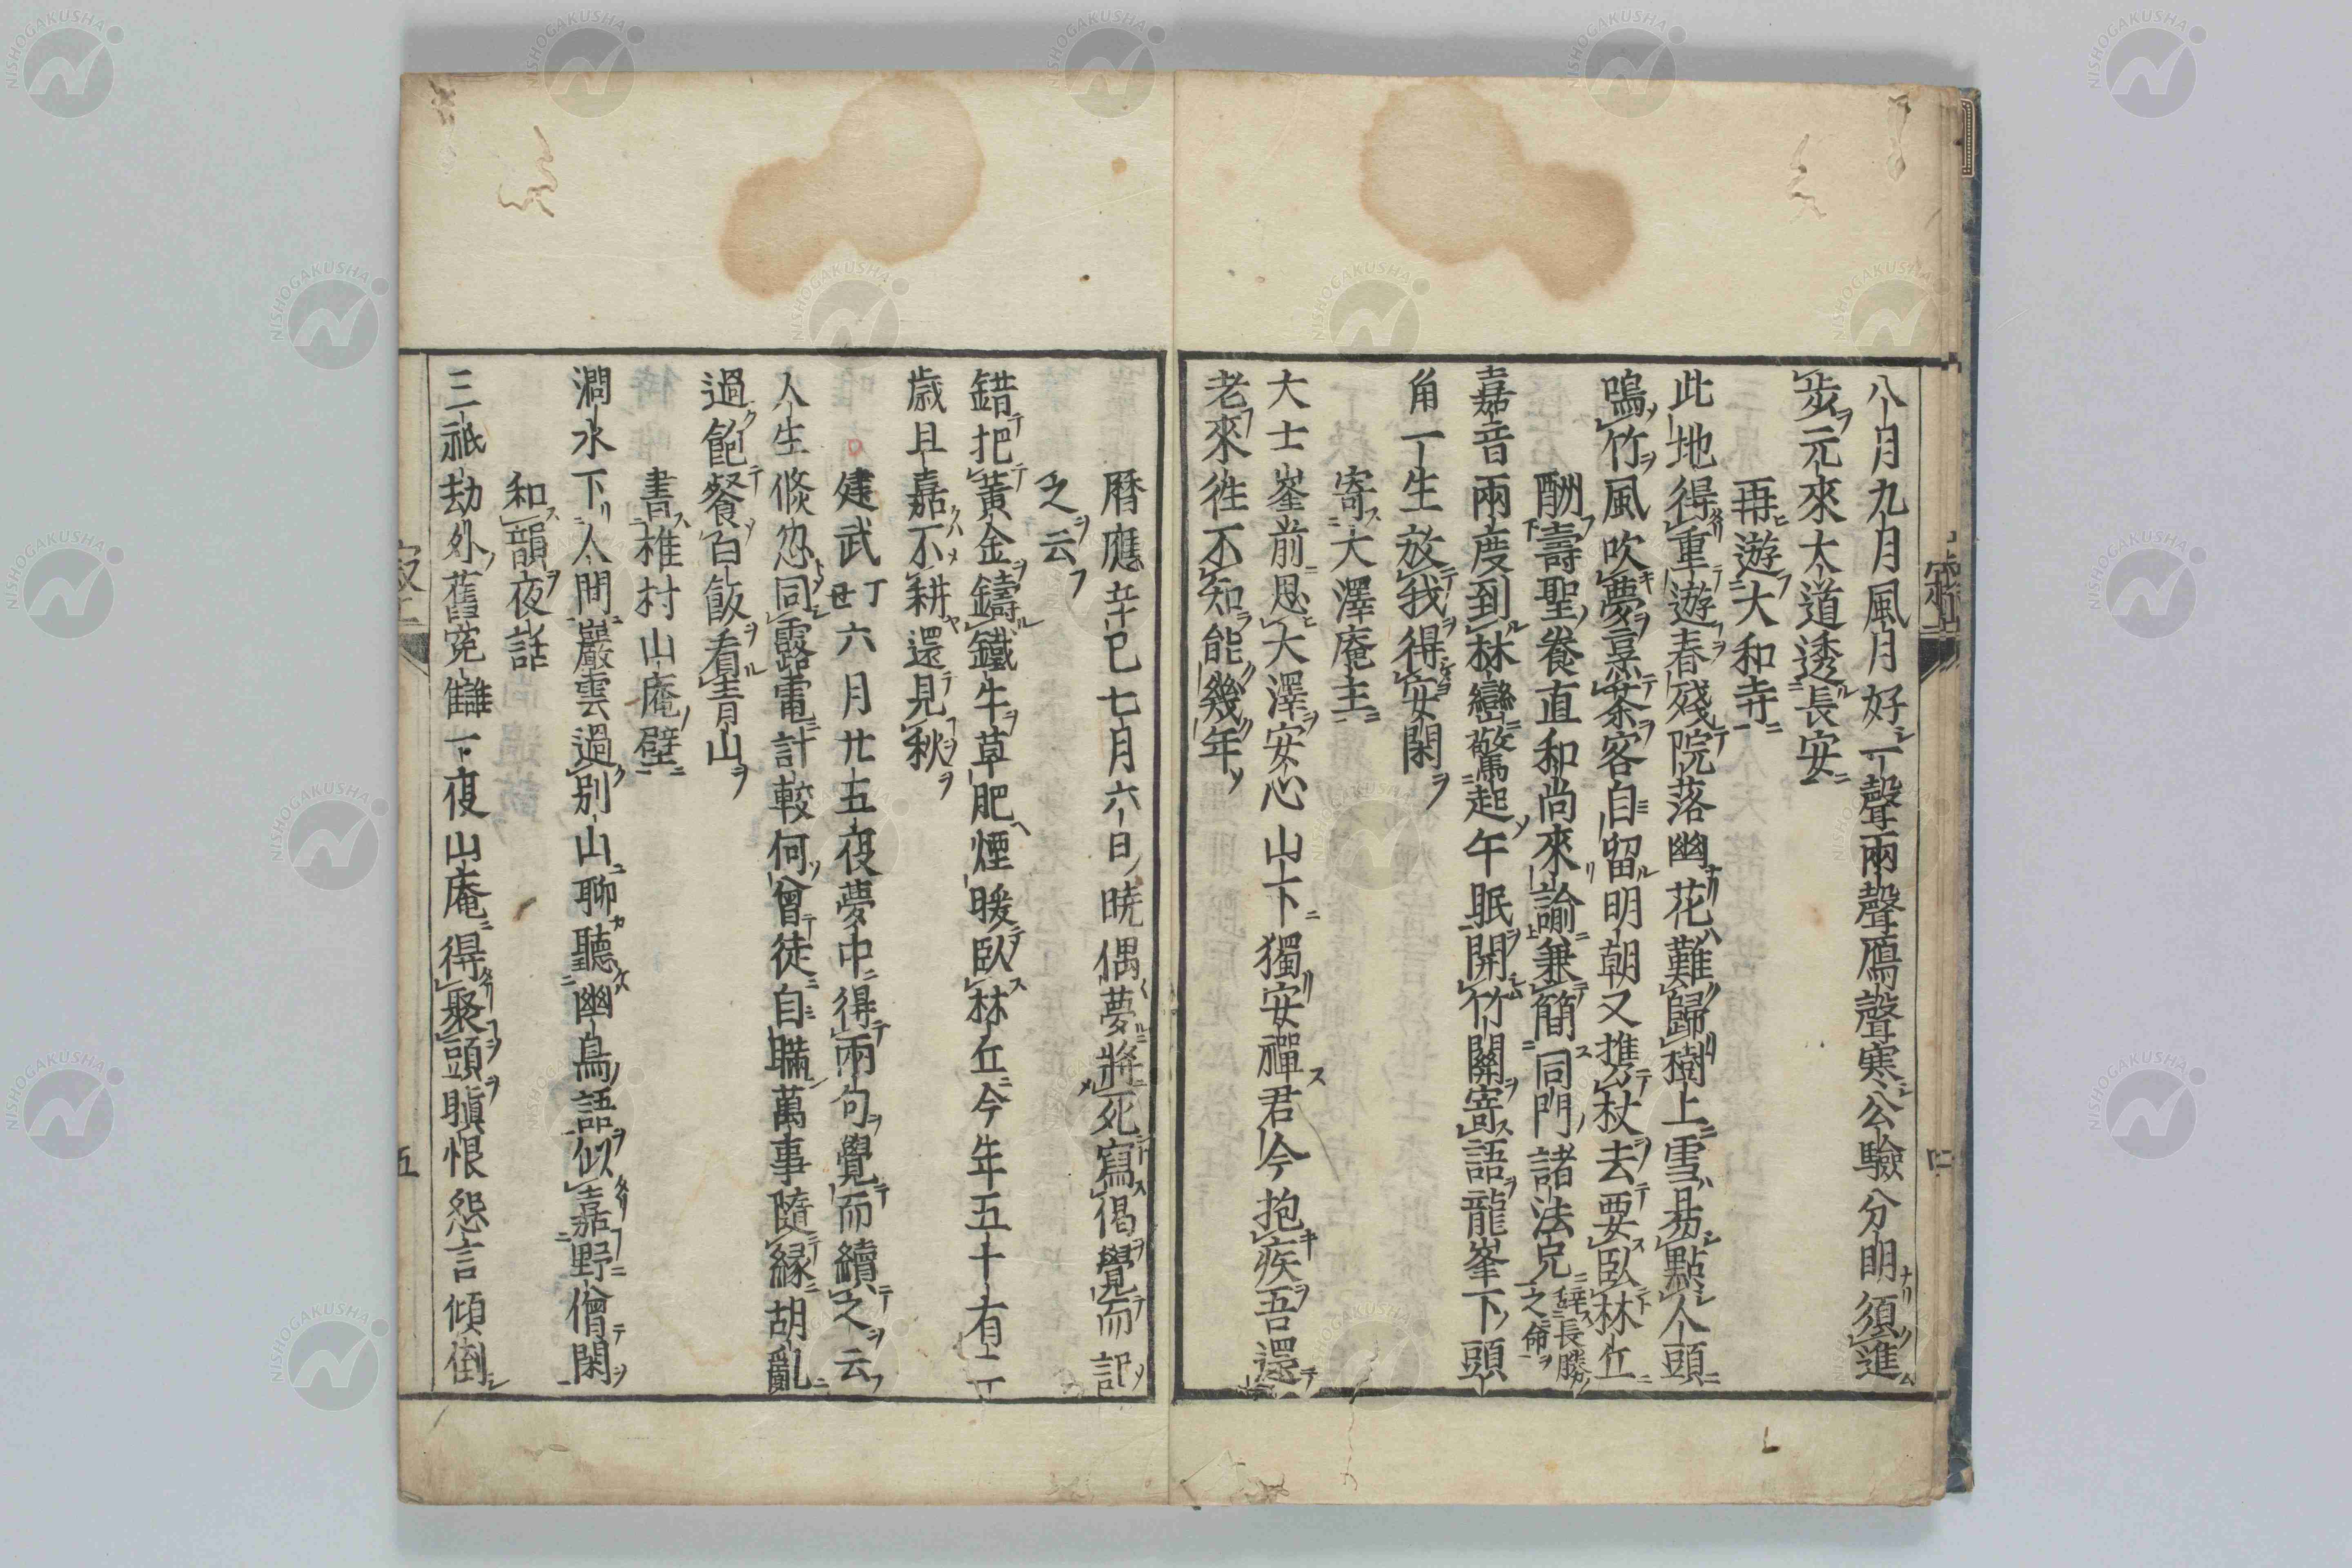 八月九月風月好一聲兩聲鴈聲寒公驗分明須進
步元來大道透長安
再遊大和寺
此地得重遊春殘院落幽花難歸樹上雪易點人頭
鳴竹風吹夢烹茶客自留明朝又携杖去要臥林丘
酬壽聖養直和尚來諭兼簡同門諸法兄辞長勝之命
嘉音兩度到林巒驚起午眠開竹關寄語龍峯下頭
角一生放我得安閑
寄大澤庵主
大士峯前思大澤安心山下獨安禪君今抱疾吾還
老來徃不知能幾年
暦應辛巳七月六日曉偶夢將死寫偈覺而記
之云
錯把黃金鑄鐵牛草肥煙暖臥林丘今年五十有二
歲且嘉不耕還見秋
建武丁丑六月廿五夜夢中得兩句覺而續之云
人生倐忽同露電計較何曾徒自瞞萬事隨緣胡亂
過飽餐白飯看青山
書椎村山庵壁
澗水下人間巖雲過別山聊聽幽鳥語似嘉野僧閑
和韻夜話
三祇劫外舊寃讎一夜山庵得聚頭瞋恨怨言傾倒
五